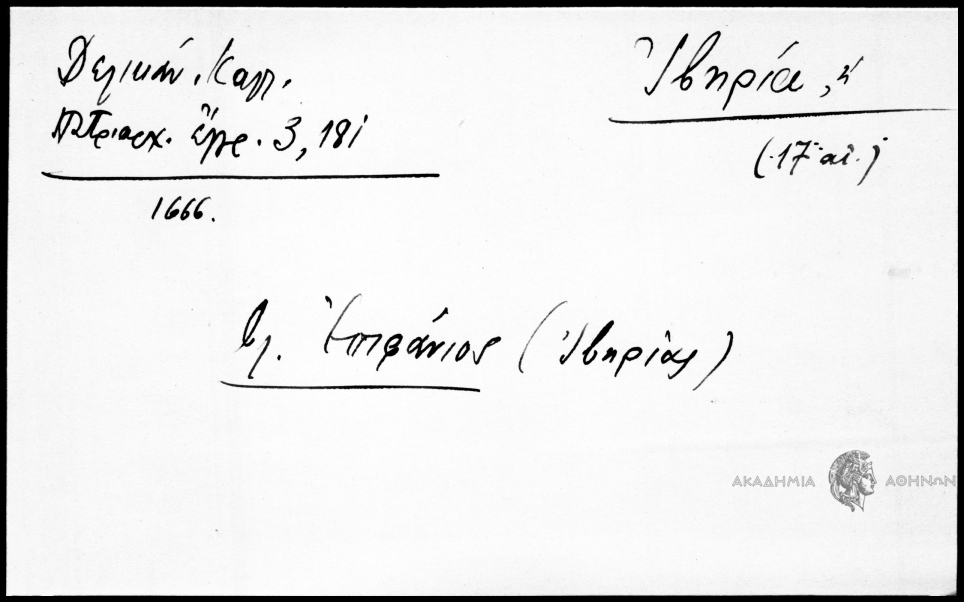 Δελικάν. Καλλ.
Πατριαρχ. ἔγγρ. 3, 181
1666.
Ἰβηρία, ἡ
(17 αἰ.)
βλ. Ἐπιφάνιος (Ἰβηρίας)
ΑΚΑΔΗΜΙΑ ΑΘΗΝΩΝ